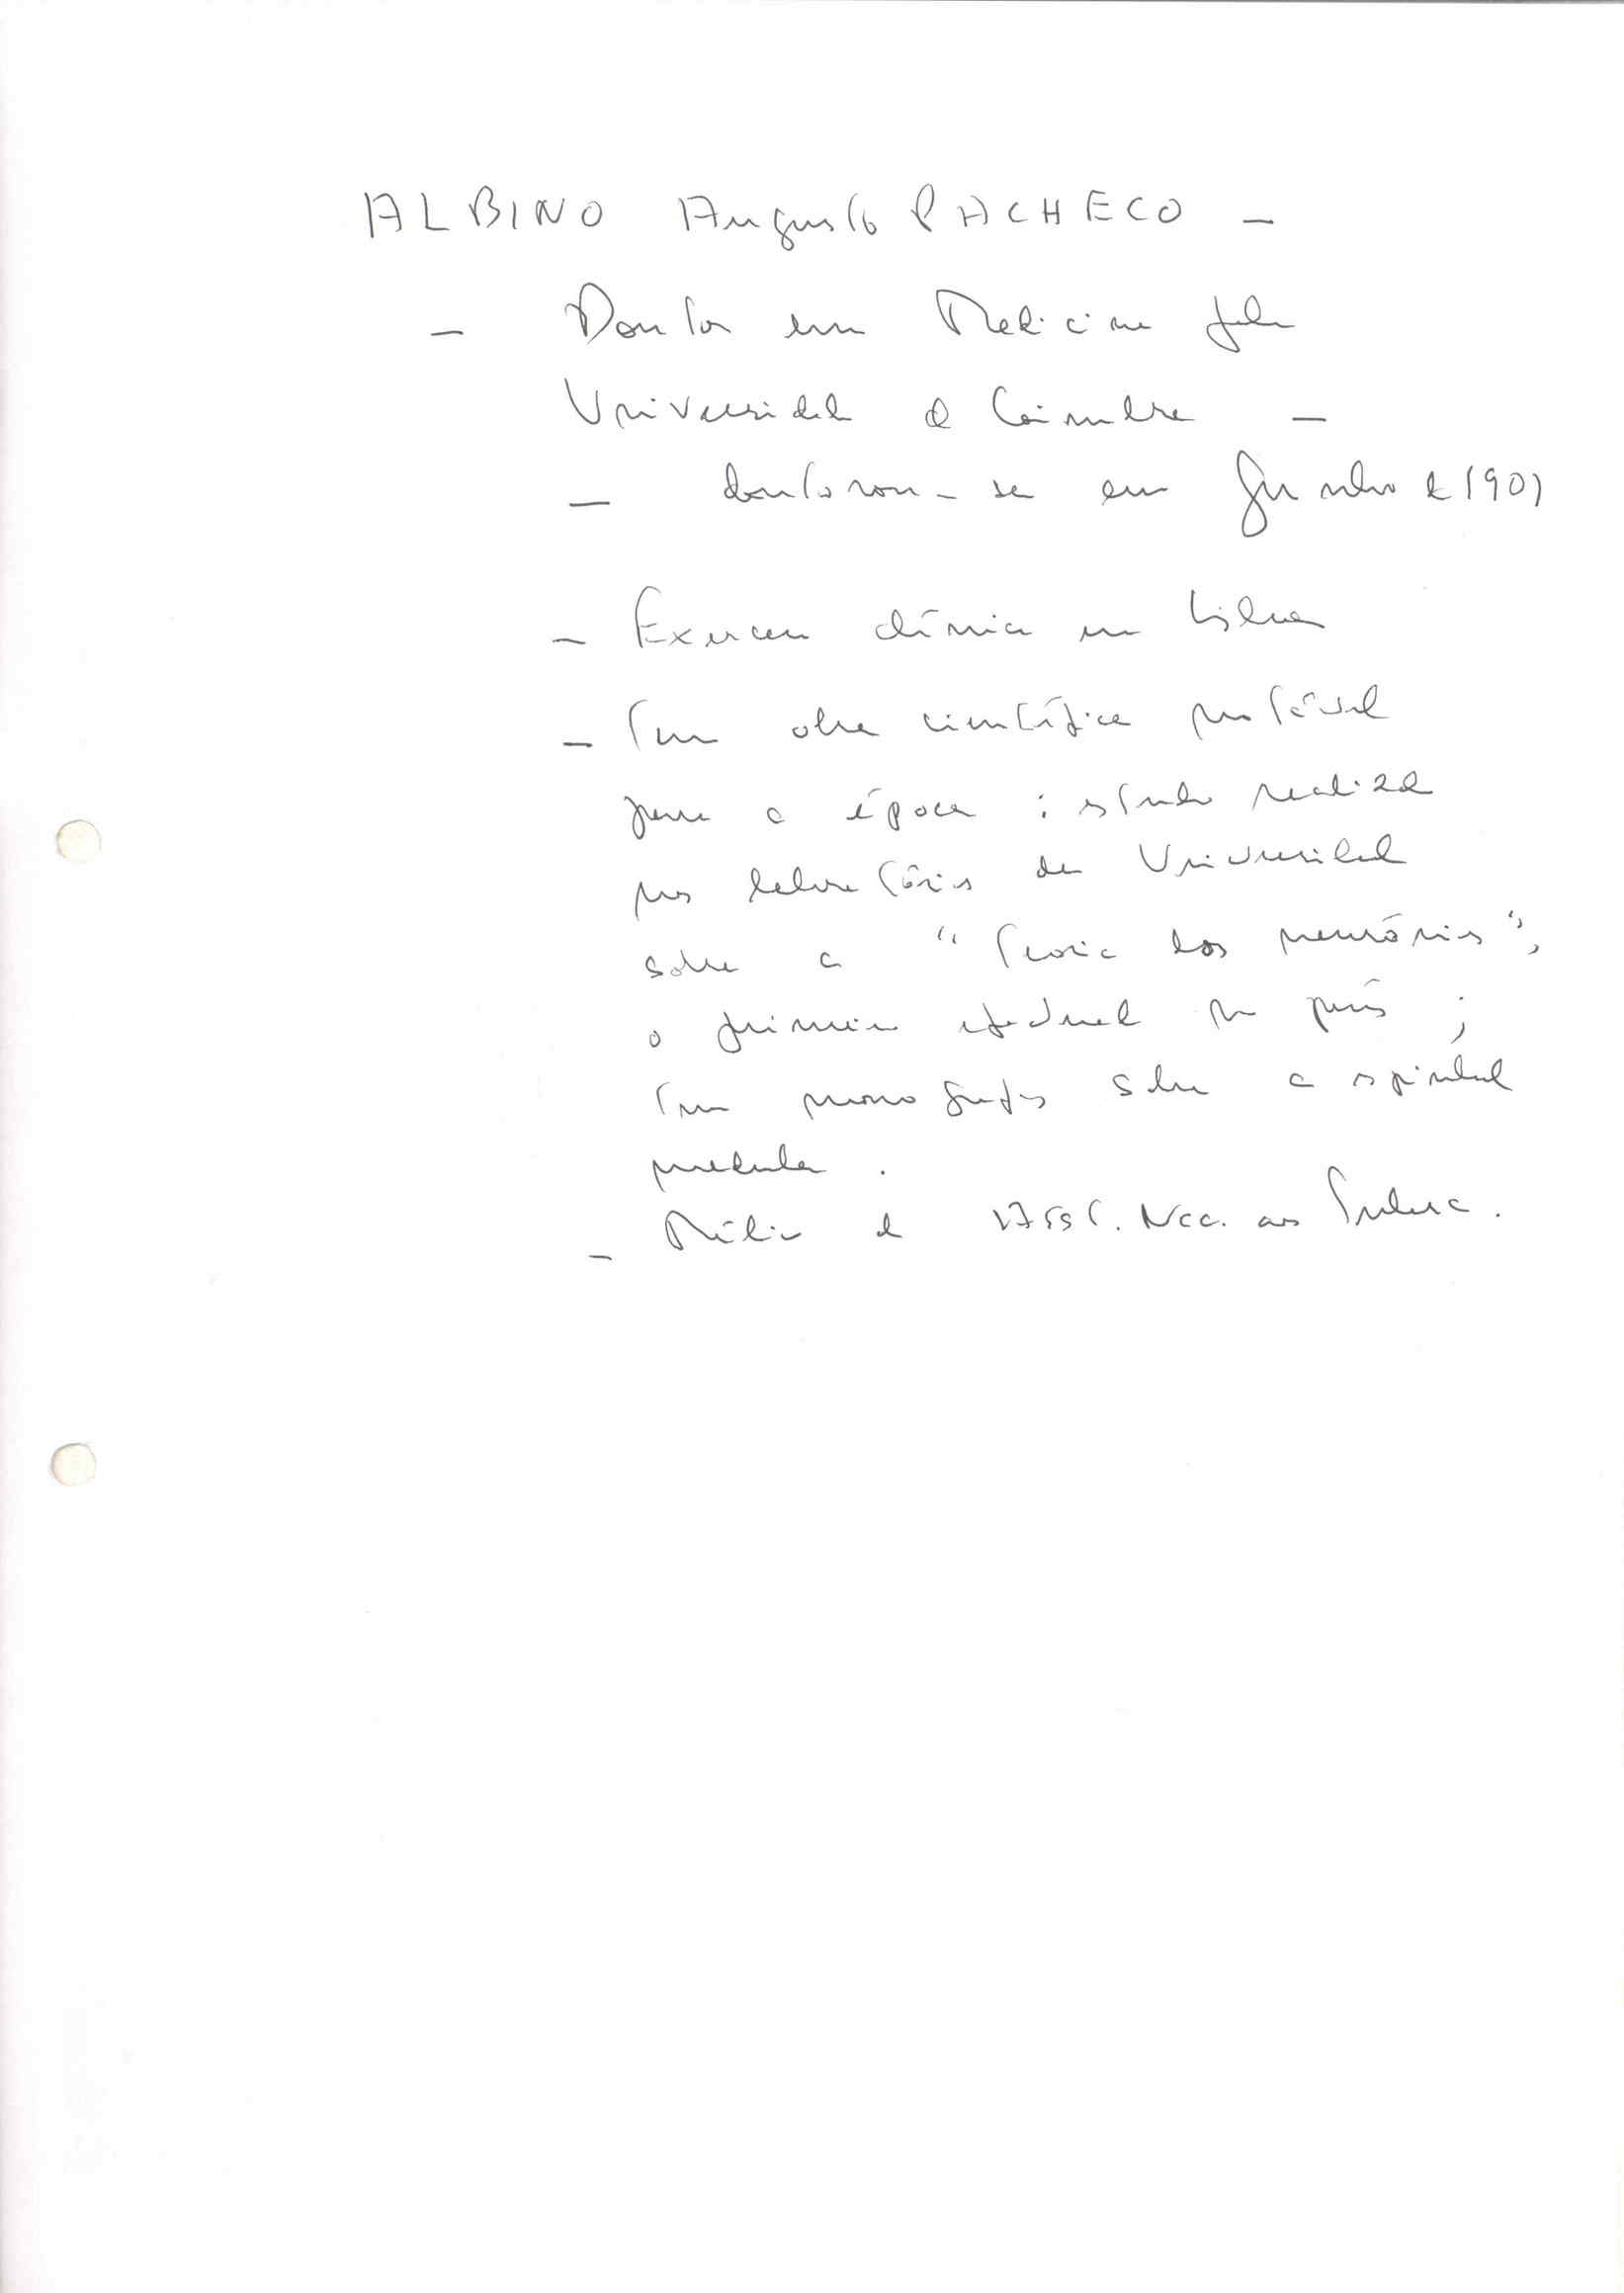 ALBINO Augusto PACHECO –
– Doutor em Medicina pela
Universidade de Coimbra –
– doutorou-se em Junho de 1901
– Exerceu clínica em Lisboa
– Tem obra científica notável
para a época : estudo realizado
nos laboratórios da Universidade
sobre a "Teoria dos neurónios",
o primeiro efectuado no país ;
tem monografias sobre a espinal
medula .
– Médico da Assist. Nac. aos Tuberc.